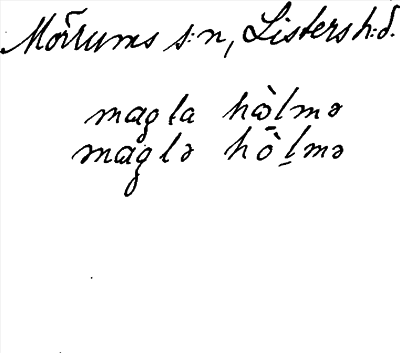 Mörrums s:n, Listers h:d.
magla hò̱lmə
maglə hò̱lmə